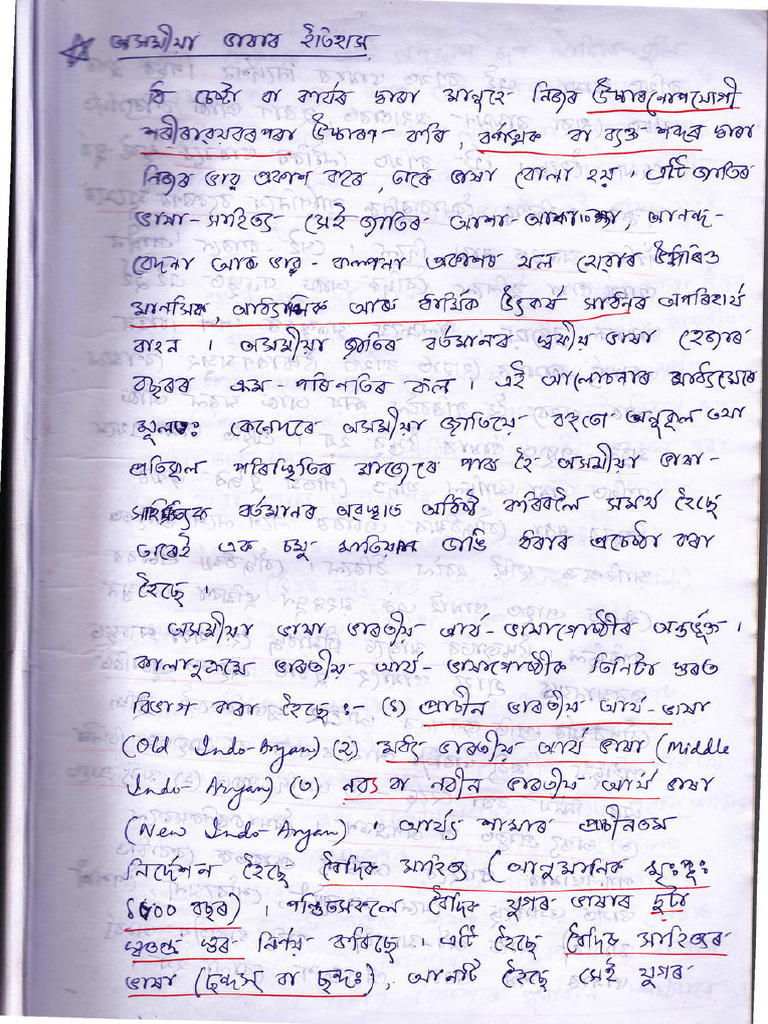 অসমীয়া ভাষাৰ ইতিহাস
যি চেষ্টা বা কাৰ্যৰ দ্বাৰা মানুহে নিজৰ উচ্চাৰণোপযোগী
শৰীৰাৱয়ৱৰপৰা উচ্চাৰণ কৰি, বৰ্ণাত্মক বা ব্যক্ত শব্দৰে দ্বাৰা
নিজৰ ভাৱ প্ৰকাশ কৰে, তাৰে ভাষা বোলা হয়। এটি জাতিৰ
ভাষা-সাহিত্য সেই জাতিৰ আশা-আকাংক্ষা, আনন্দ-
বেদনা আৰু ভাৱ-কল্পনা প্ৰকাশৰ থল হোৱাৰ উপৰিও
মানসিক, আধ্যাত্মিক আৰু ধাৰ্মিক উৎকৰ্ষ সাধনৰ অপৰিহাৰ্য
বাহন। অসমীয়া জাতিৰ বৰ্তমানৰ স্বকীয় ভাষা হেজাৰ
বছৰৰ ক্ৰম-পৰিণতিৰ ফল। এই আলোচনাৰ মাধ্যমেৰে
মূলতঃ কেনেদৰে অসমীয়া জাতিয়ে বহুতো অনুকূল তথা
প্ৰতিকূল পৰিস্থিতিৰ মাজেৰে পাৰ হৈ অসমীয়া ভাষা-
সাহিত্যক বৰ্তমানৰ অৱস্থাত অধিষ্ঠিত কৰিবলৈ সমৰ্থ হৈছে
তাৰেই এক চমু দাঙি ধৰাৰ প্ৰচেষ্টা কৰা
হৈছে।
অসমীয়া ভাষা ভাৰতীয় আৰ্য-ভাষাগোষ্ঠীৰ অন্তৰ্ভূক্ত।
কালানুক্ৰমে ভাৰতীয় আৰ্য-ভাষাগোষ্ঠীক তিনিটা স্তৰত
বিভাগ কৰা হৈছে:- (১) প্ৰাচীন ভাৰতীয় আৰ্য-ভাষা
(Old Indo-Aryan) (২) মধ্য ভাৰতীয় আৰ্য ভাষা (Middle
Indo-Aryan) (৩) নব্য বা নবীন ভাৰতীয় আৰ্য ভাষা
(New Indo-Aryan)। আৰ্য্য ভাষাৰ প্ৰাচীনতম
নিৰ্দেশন হৈছে বৈদিক সাহিত্য (আনুমানিক খৃঃপূঃ
বছৰ)। পণ্ডিতসকলে বৈদিক যুগৰ ভাষাৰ দুটা
স্বতন্ত্ৰ স্তৰ নিৰ্ণয় কৰিছে। এটি হৈছে বৈদিক সাহিত্যৰ
ভাষা (ছন্দস্ বা ছন্দঃ), আনটি হৈছে সেই যুগৰ